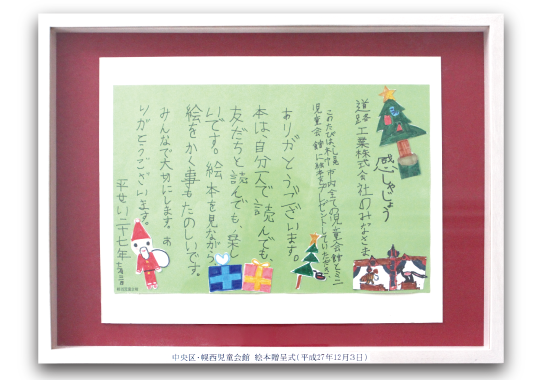 感しゃじょう
道路工業株式会社のみなさま
このたびは、札幌市内全ての児童会館とミニ
児童会館に絵本をプレゼントしていただき
ありがとうございます。
本は、自分一人で読んでも、
友だちと読んでも、楽し
いです。絵本を見ながら、
絵をかく事もたのしいです。
みんなで大切にします。あ
りがとうございます。
平せい二十七年
中央区・幌西児童会館 絵本贈呈式(平成27年12月3日)